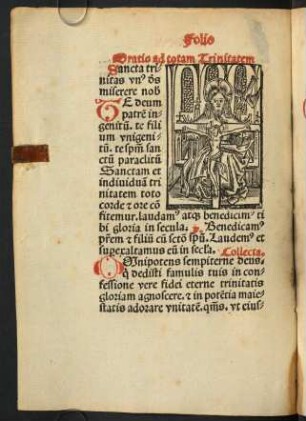 Folio
Oratio ad totam Trinitatem
Sancta tri
nitas vnꝰ de͂s
miserere nob
TE deum
patrē in
genitū. te fili
um vnigeni
tū. te spm̄ san
ctū paraclitū
Sanctam et
indiuiduā tri
nitatem toto
corde ⁊ ore cō
fitemur. laudamꝰ atqꝫ benedicimꝰ ti
bi gloria in secula. ℣. Benedicamꝰ
p̄rem ⁊ filiū cū sctō spū. Laudemꝰ et
supexaltamus eū in secla. Collecta.
OMnipotens sempiterne deus.
q̇ dedisti famulis tuis in con-
fessione vere fidei eterne trinitatis
gloriam agnoscere. ⁊ in potētia maie
statis adorare vnitatē. qm̄s. vt eius-